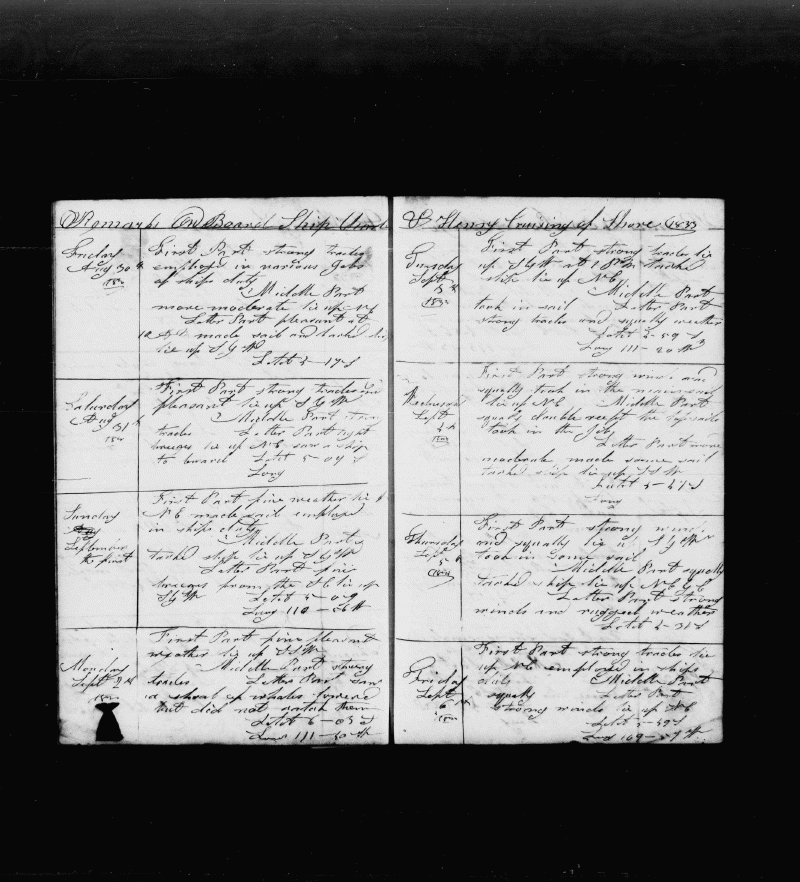 Remarks On Board Ship
Friday
Aug 30th
First Part strong trades
employed in various Jobs
of ships duty
Middle Part
more moderate
Latter Part pleasant at
made sail and tacked ship
lie up S by W
Latd 5-17 S
Saturday
Aug 31
First Part strong trades and
pleasant lie up S by W
Middle Part
trades Latter Part light
breezes lie up NE saw a ship
to board Latd 5-09 S
Long
Sunday
September
the first
First Part fine weather lie up
NE made sail employed
in ships duty
Middle Part
tacked ship lie up S by W
Latter Part fine
breezes from the SE lie up
S by W Latd 5-09
Long 110-56 W
Monday
Sept 2nd
First Part fine pleasant
weather lie up SSW
Middle Part strong
trades Latter Part saw
a shoal of whales lowered
but did not them
Latd 6-03 S
Long 111-30 W
Henry Cruising of Shore 1833
Tuesday
Sept
First Part strong trades lie
up S by W at PM tacked
ship lie up NE
Middle Part
took in sail Latter Part
strong trades and squaly weather
Latd 5-59 S
Long 111-20 W
Wednesday
Sept
First Part strong winds and
squaly took in the
lie up NE Middle Part
squals double the topsails
took in the Jib
Latter Part more
moderate made some sail
tacked ship lie up SSW
Latd
Long
Thursday
Sept
5
First Part strong winds
and squaly lie S by W
took in some sail
Middle Part squaly
tacked ship lie up
Latter Part strong
winds and rugged weather
Latd
Friday
Sept
6th
First Part strong trades lie
up NE employed in ships
duty Middle Part
squaly Latter Part
strong winds lie up NE
Latd
Long 109-59 W